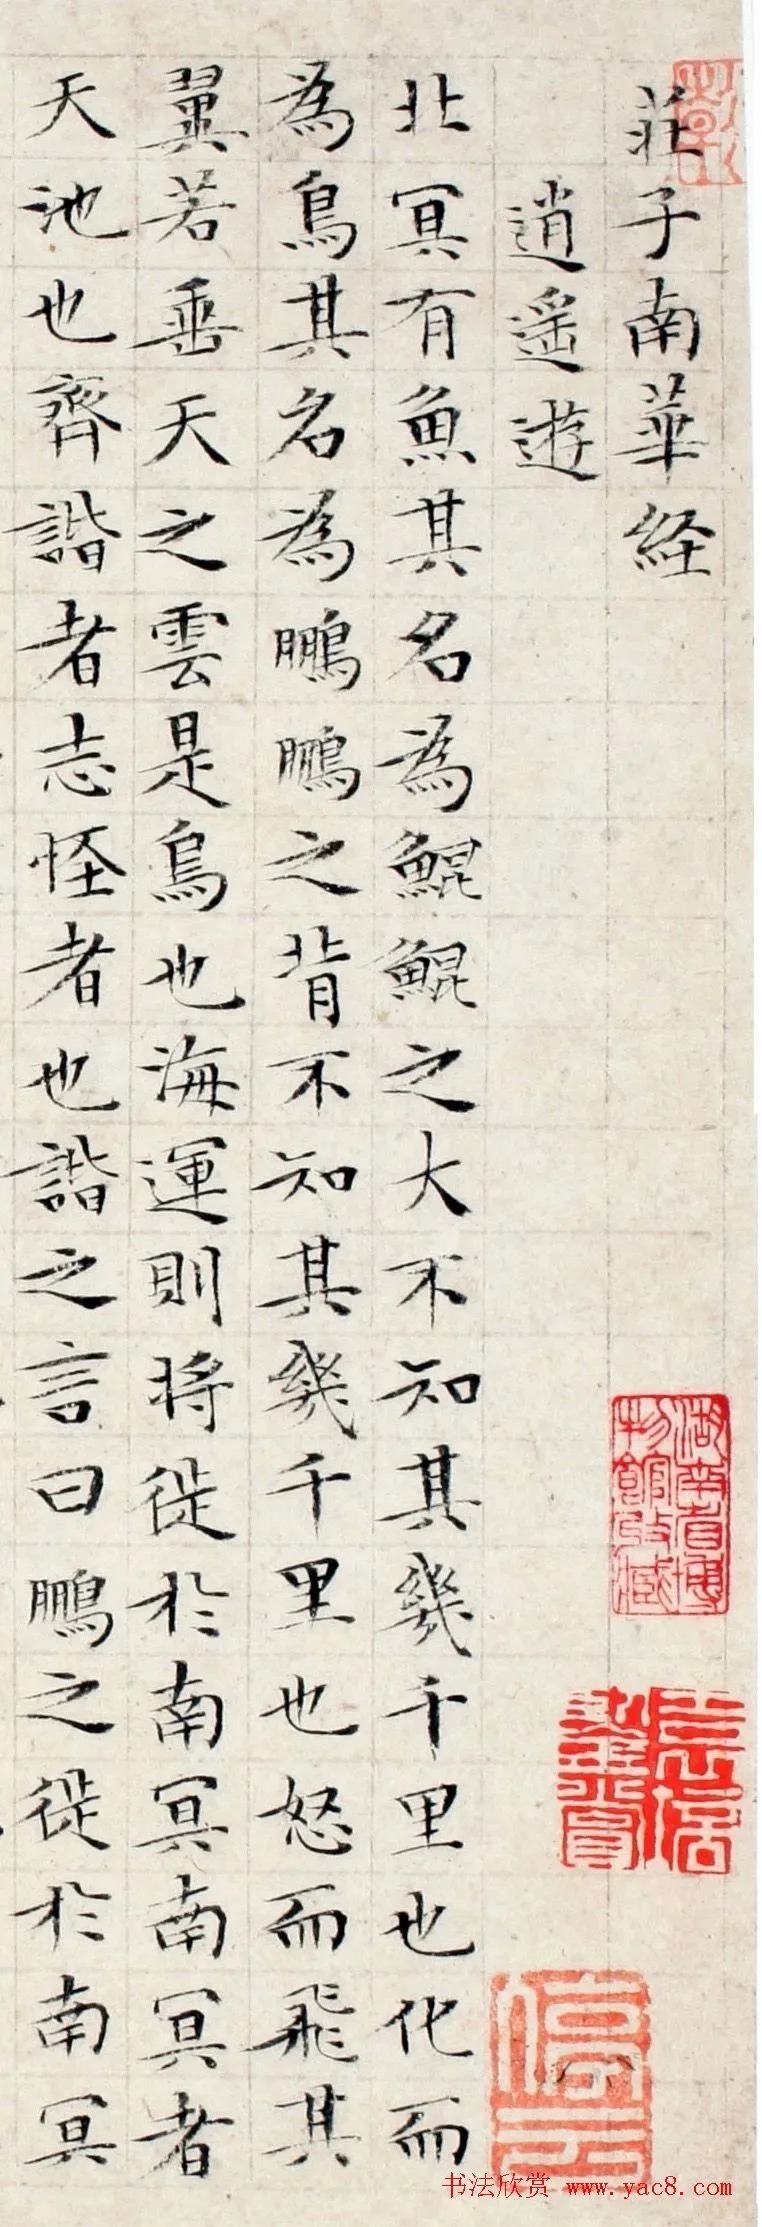 莊子南華経
逍遥遊
北冥有魚其名為鯤鯤之大不知其幾千里也化而
為鳥其名為鵬鵬之背不知其幾千里也怒而飛其
翼若垂天之雲是鳥也海運則将徙於南冥南冥者
天池也齊諧者志怪者也諧之言曰鵬之徙於南冥
湖南省博
物館收藏
停雲
书法欣赏 www.yac8.com